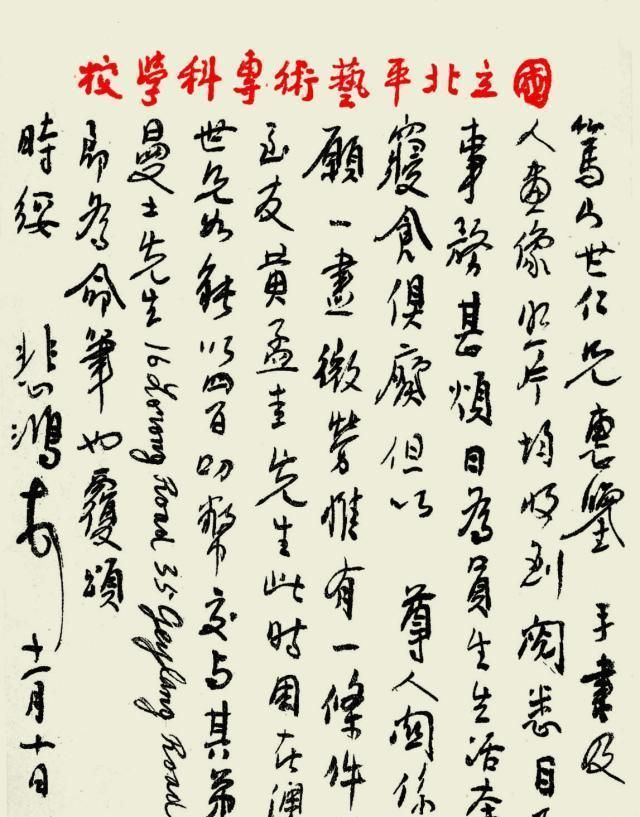 國立北平藝術專科學校
篤山世仁兄惠鑒 手書及
人畫像照片均收到閱悉目
事務甚煩日為員生生活奔
寢食俱廢但以 尊人關係
願一盡微勞惟有一條件
至友黃孟圭先生此時困在
世兄如能以四百叻幣交与其弟
曼士先生 16 Lorong Road 35 Geylang Road
即為命筆也覆頌
時綏 悲鴻 十一月十日